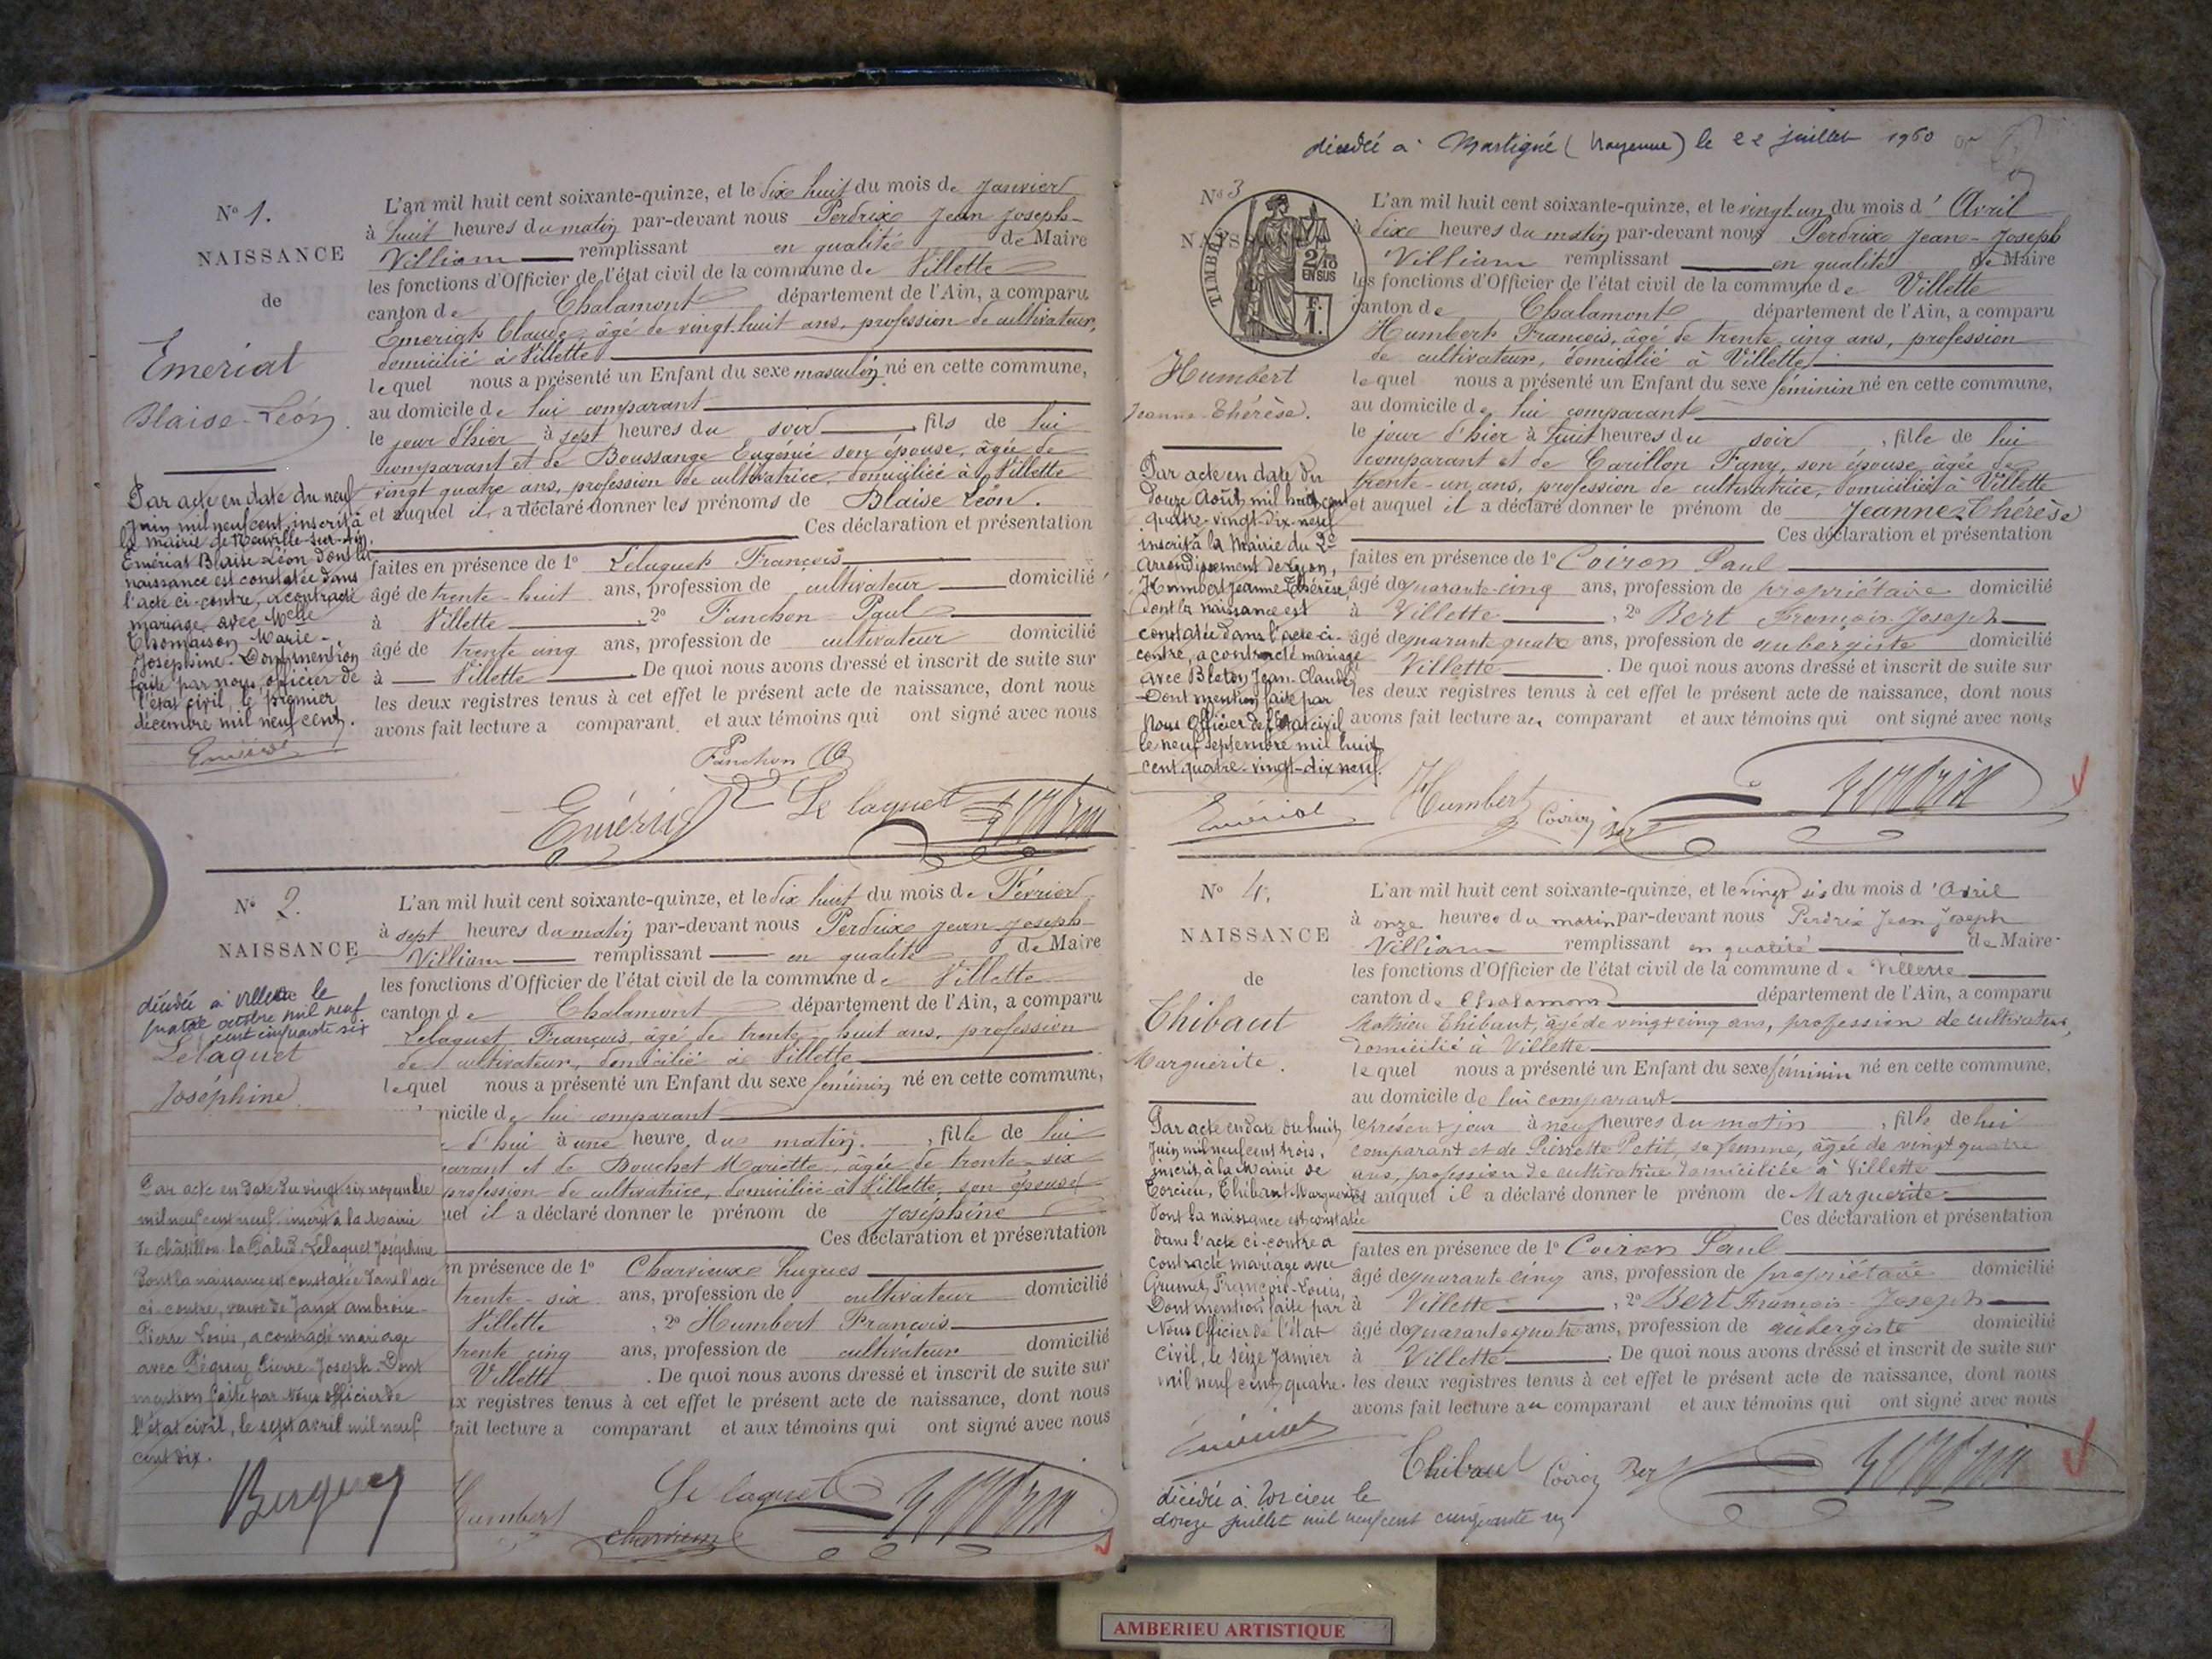 N° 1.
NAISSANCE
de
Emeriat
Blaise-Léon.
Par acte en date du neuf
Juin mil neuf cent, inscrit à
la mairie de Neuville-sur-Ain,
Emériat Blaise Léon dont la
naissance est constatée dans
l'acte ci-contre, a contracté
mariage avec Melle
Thomasson Marie-
Joséphine. Dont mention
faite par nous, officier de
l'état civil, le premier
décembre mil neuf cent.
L'an mil huit cent soixante-quinze, et le dix huit du mois de Janvier
à huit heures du matin par-devant nous Perdrix Jean Joseph-
Villiam remplissant en qualité de Maire
les fonctions d'Officier de l'état civil de la commune de Villette
canton de Chalamont département de l'Ain, a comparu
Emeriat Claude, âgé de vingt-huit ans, profession de cultivateur,
domicilié à Villette
lequel nous a présenté un Enfant du sexe masculin né en cette commune,
au domicile de lui comparant
le jour d'hier à sept heures du soir, fils de lui
comparant et de Boussange Eugénie son épouse, âgée de
vingt quatre ans, profession de cultivatrice, domiciliée à Villette
et auquel il a déclaré donner les prénoms de Blaise Léon.
Ces déclaration et présentation
faites en présence de 1° Lelaquet François
âgé de trente-huit ans, profession de cultivateur domicilié
à Villette, 2° Fanchon Paul
âgé de trente cinq ans, profession de cultivateur domicilié
à Villette. De quoi nous avons dressé et inscrit de suite sur
les deux registres tenus à cet effet le présent acte de naissance, dont nous
avons fait lecture a comparant et aux témoins qui ont signé avec nous
Fanchon
Emériat Le laquet Perdrix
N° 2.
NAISSANCE
décédée à Villette le
quatre octobre mil neuf
cent cinquante six
Lelaquet
Joséphine
Par acte en date du vingt six novembre
mil neuf cent neuf, inscrit à la Mairie
de Châtillon-la-Palud, Lelaquet Joséphine
dont la naissance est constatée dans l'acte
ci-contre, veuve de Janet Ambroise-
Pierre Louis, a contracté mariage
avec Pierre-Joseph. Dont
mention faite par Nous Officier de
l'état civil, le sept avril mil neuf
cent dix.
L'an mil huit cent soixante-quinze, et le dix huit du mois de Février
à sept heures du matin par-devant nous Perdrix Jean Joseph
Villiam remplissant en qualité de Maire
les fonctions d'Officier de l'état civil de la commune de Villette
canton de Chalamont département de l'Ain, a comparu
Lelaquet François, âgé de trente-huit ans, profession
de cultivateur, domicilié à Villette
lequel nous a présenté un Enfant du sexe féminin né en cette commune,
micile de lui comparant
d'hui à une heure du matin, fille de lui
parant et de Bouchet Mariette, âgée de trente-six
profession de cultivatrice, domiciliée à Villette, son épouse
uel il a déclaré donner le prénom de Joséphine
Ces déclaration et présentation
n présence de 1° Charvieux hugues
trente-six ans, profession de cultivateur domicilié
Villette, 2° Humbert François
trente cinq ans, profession de cultivateur domicilié
Villette. De quoi nous avons dressé et inscrit de suite sur
ux registres tenus à cet effet le présent acte de naissance, dont nous
fait lecture a comparant et aux témoins qui ont signé avec nous
Humbert Charvieux Le laquet Perdrix
décédée à Martigné (Mayenne) le 22 juillet 1960
N° 3
NAISSANCE
TIMBRE
2/10
EN SUS
F.
1.
Humbert
Jeanne-Thérèse.
Par acte en date du
douze Août, mil huit cent
quatre-vingt-dix-neuf
inscrit à la Mairie du 2e
Arrondissement de Lyon,
Humbert Jeanne Thérèse,
dont la naissance est
constatée dans l'acte ci-
contre, a contracté mariage
avec Bleton Jean-Claude
Dont mention faite par
Nous Officier de l'Etat civil
le neuf septembre mil huit
cent quatre-vingt-dix neuf.
Emériat
L'an mil huit cent soixante-quinze, et le vingt un du mois d'Avril
à dix heures du matin par-devant nous Perdrix Jean-Joseph
Villiam remplissant en qualité de Maire
les fonctions d'Officier de l'état civil de la commune de Villette
canton de Chalamont département de l'Ain, a comparu
Humbert François, âgé de trente cinq ans, profession
de cultivateur, domicilié à Villette
lequel nous a présenté un Enfant du sexe féminin né en cette commune,
au domicile de lui comparant
le jour d'hier à huit heures du soir, fille de lui
comparant et de Carillon Fany, son épouse âgée de
trente-un ans, profession de cultivatrice, domiciliée à Villette
et auquel il a déclaré donner le prénom de Jeanne-Thérèse
Ces déclaration et présentation
faites en présence de 1° Coiron Paul
âgé de quarante-cinq ans, profession de propriétaire domicilié
à Villette, 2° Bert François-Joseph
âgé de quarante quatre ans, profession de aubergiste domicilié
Villette. De quoi nous avons dressé et inscrit de suite sur
les deux registres tenus à cet effet le présent acte de naissance, dont nous
avons fait lecture au comparant et aux témoins qui ont signé avec nous
Humbert Coiron Bert Perdrix
N° 4.
NAISSANCE
de
Thibaut
Marguerite.
Par acte en date du huit
Juin mil neuf cent trois,
inscrit à la Mairie de
Torcieu, Thibaut Marguerite
dont la naissance est constatée
dans l'acte ci-contre a
contracté mariage avec
Grumet François-Louis,
Dont mention faite par
Nous Officier de l'état
civil, le seize Janvier
mil neuf cent quatre.
Emériat
décédée à Torcieu le
douze juillet mil neuf cent cinquante un
L'an mil huit cent soixante-quinze, et le vingt six du mois d'Avril
à onze heures du matin par-devant nous Perdrix Jean Joseph
Villiam remplissant en qualité de Maire
les fonctions d'Officier de l'état civil de la commune de Villette
canton de Chalamont département de l'Ain, a comparu
Mathieu Thibaut, âgé de vingt cinq ans, profession de cultivateur,
domicilié à Villette
lequel nous a présenté un Enfant du sexe féminin né en cette commune,
au domicile de lui comparant
le présent jour à neuf heures du matin, fille de lui
comparant et de Pierrette Petit, sa femme, âgée de vingt quatre
ans, profession de cultivatrice domiciliée à Villette
et auquel il a déclaré donner le prénom de Marguerite
Ces déclaration et présentation
faites en présence de 1° Coiron Paul
âgé de quarante cinq ans, profession de propriétaire domicilié
à Villette, 2° Bert François-Joseph
âgé de quarante quatre ans, profession de aubergiste domicilié
à Villette. De quoi nous avons dressé et inscrit de suite sur
les deux registres tenus à cet effet le présent acte de naissance, dont nous
avons fait lecture au comparant et aux témoins qui ont signé avec nous
Thibaut Coiron Bert Perdrix
AMBERIEU ARTISTIQUE